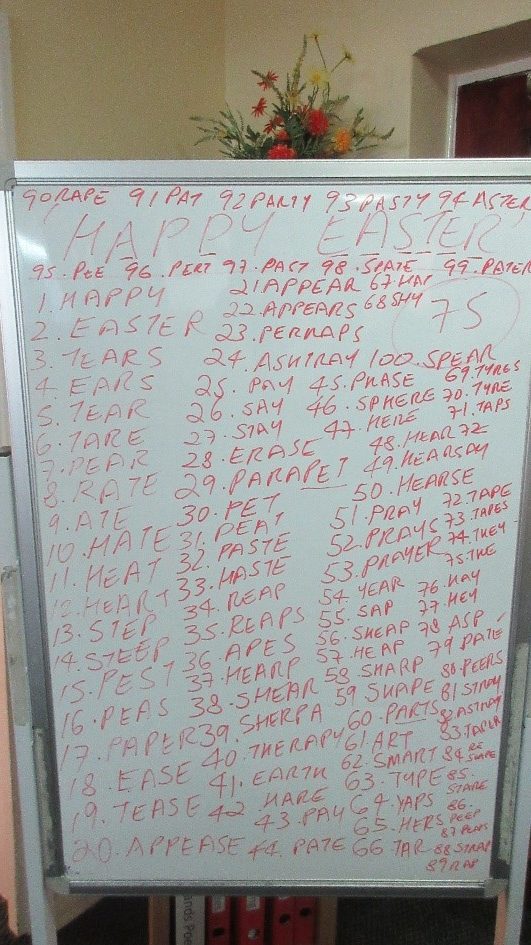 90 RAPE 91 PAT 92 PARTY 93 PASTY 94 ASTER
HAPPY EASTER
95. PEE 96. PERT 97. PAST 98. SPATE 99. PATER
1. HAPPY
2. EASTER
3. TEARS
4. EARS
5. TEAR
6. TARE
7. PEAR
8. RATE
9. ATE
10. HATE
11. HEAT
12. HEART
13. STEP
14. STEEP
15. PEST
16. PEAS
17. PAPER
18. EASE
19. TEASE
20. APPEASE
21 APPEAR
22. APPEARS
23. PERHAPS
24. ASHTRAY
25. PAY
26. SAY
27. STAY
28. ERASE
29. PARAPET
30. PET
31. PEAT
32. PASTE
33. HASTE
34. REAP
35. REAPS
36. APES
37. HEARP
38. SMEAR
39. SHERPA
40. THERAPY
41. EARTH
42. HARE
43. PAY
44. PATE
45. PHASE
46. SPHERE
47. HERE
48. HEAR 72
49. HEARSAY
50. HEARSE
51. PRAY
52. PRAYS
53. PRAYER
54. YEAR
55. SAP
56. SHEAP
57. HEAP
58. SHARP
59. SHAPE
60. PARTS
61. ART
62. SMART
63. TYPE
64. YAPS
65. HERS
66. TAR
67. HAP
68 SHY
75
100. SPEAR
69. TYRES
70. TYRE
71. TAPS
72. TAPE
73. TAPES
74. THEY
75. THE
76. HAY
77. HEY
78 ASP
79 DATE
80. PEERS
81 STRAY
82 ASTRAY
83 TAPER
84. RE
SHAPE
85.
STARE
86.
PEEP
87 PEAPS
88 STRAP
89 RAP
ands Poe